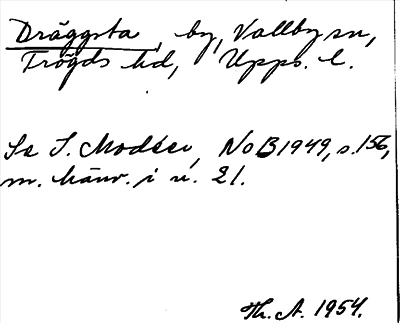 Dräggsta, by, Vallby sn,
Trögds hd, Upps. l.
Se I. Modéer, NoB 1949, s. 156,
m. hänv. i n. 21.
Th. A. 1954.